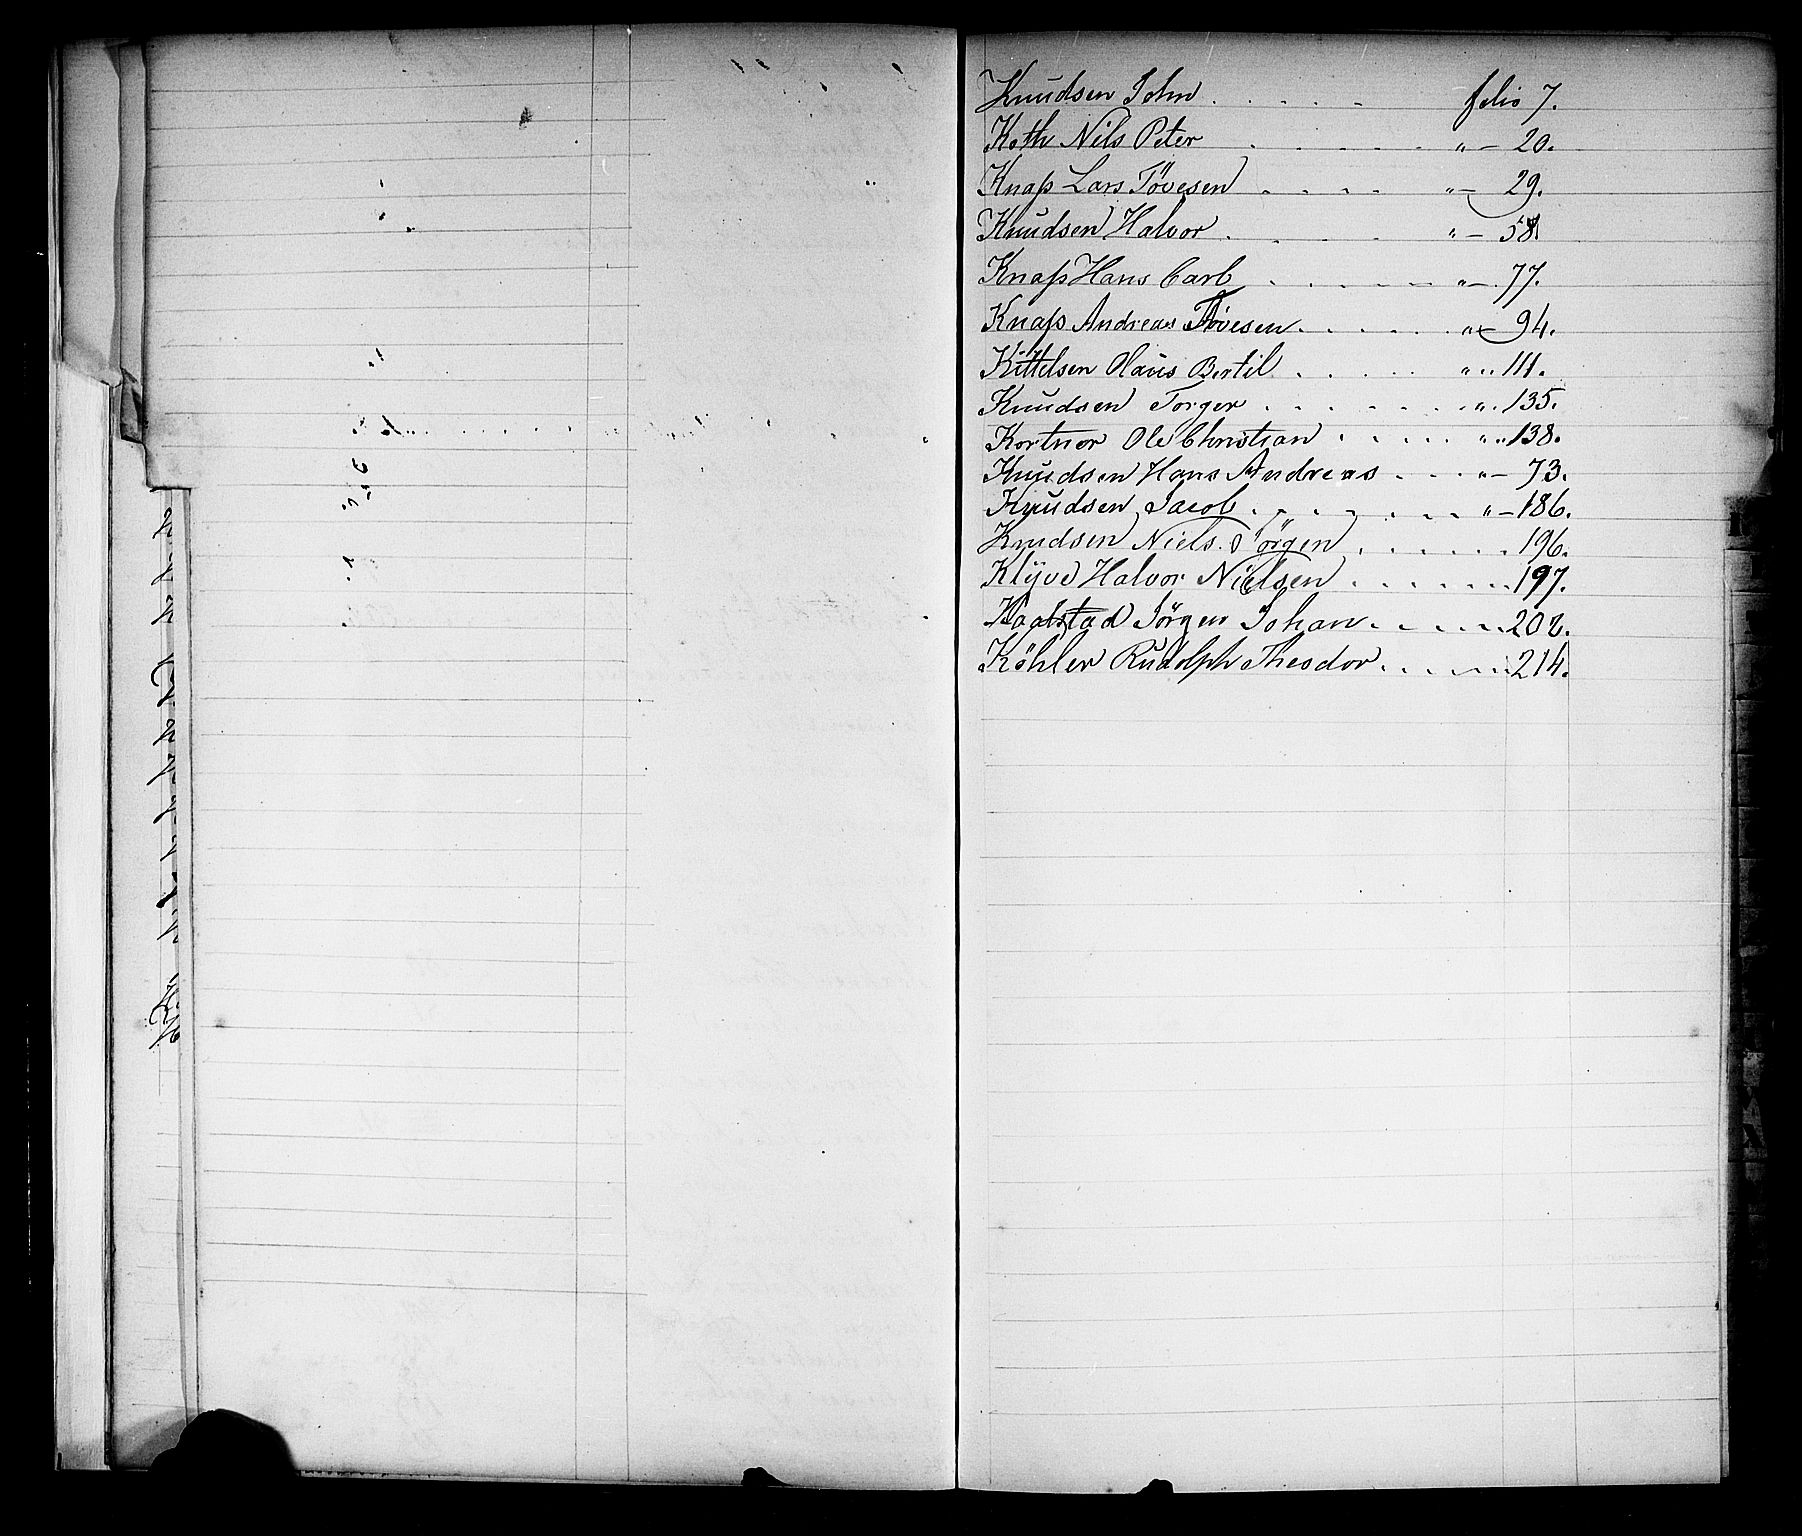 Knudsen John . . . . . folio 7.
Koth Nils Peter . . . . . . „ — 20.
Knaß Lars Tøvesen . . . . „ — 29.
Knudsen Halvor . . . . „ — 58
Knaß Hans Carl . . . . „ — 77.
Knaß Andreas Tøvesen . . . . . „ — 94.
Kittelsen Olaus Bertil . . . . „ „ 111.
Knudsen Torger . . . . . . „ . 135.
Kortnor Ole Christian . . . . . „ „ 138.
Knudsen Hans Andreas . . . „ — 73.
Knudsen Jacob . . . . . . „ — 186.
Knudsen Niels Jörgen . . . . . . 196.
Klÿve Halvor Nielsen . . . . . . 197.
Jörgen Johan . . . . . 202.
Köhler Rudolph Theodor . . . . . 214.